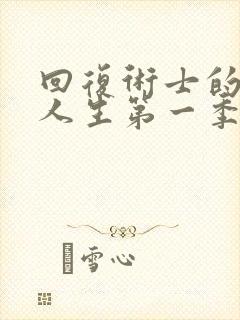 回復術士的
人生第一季
雪心